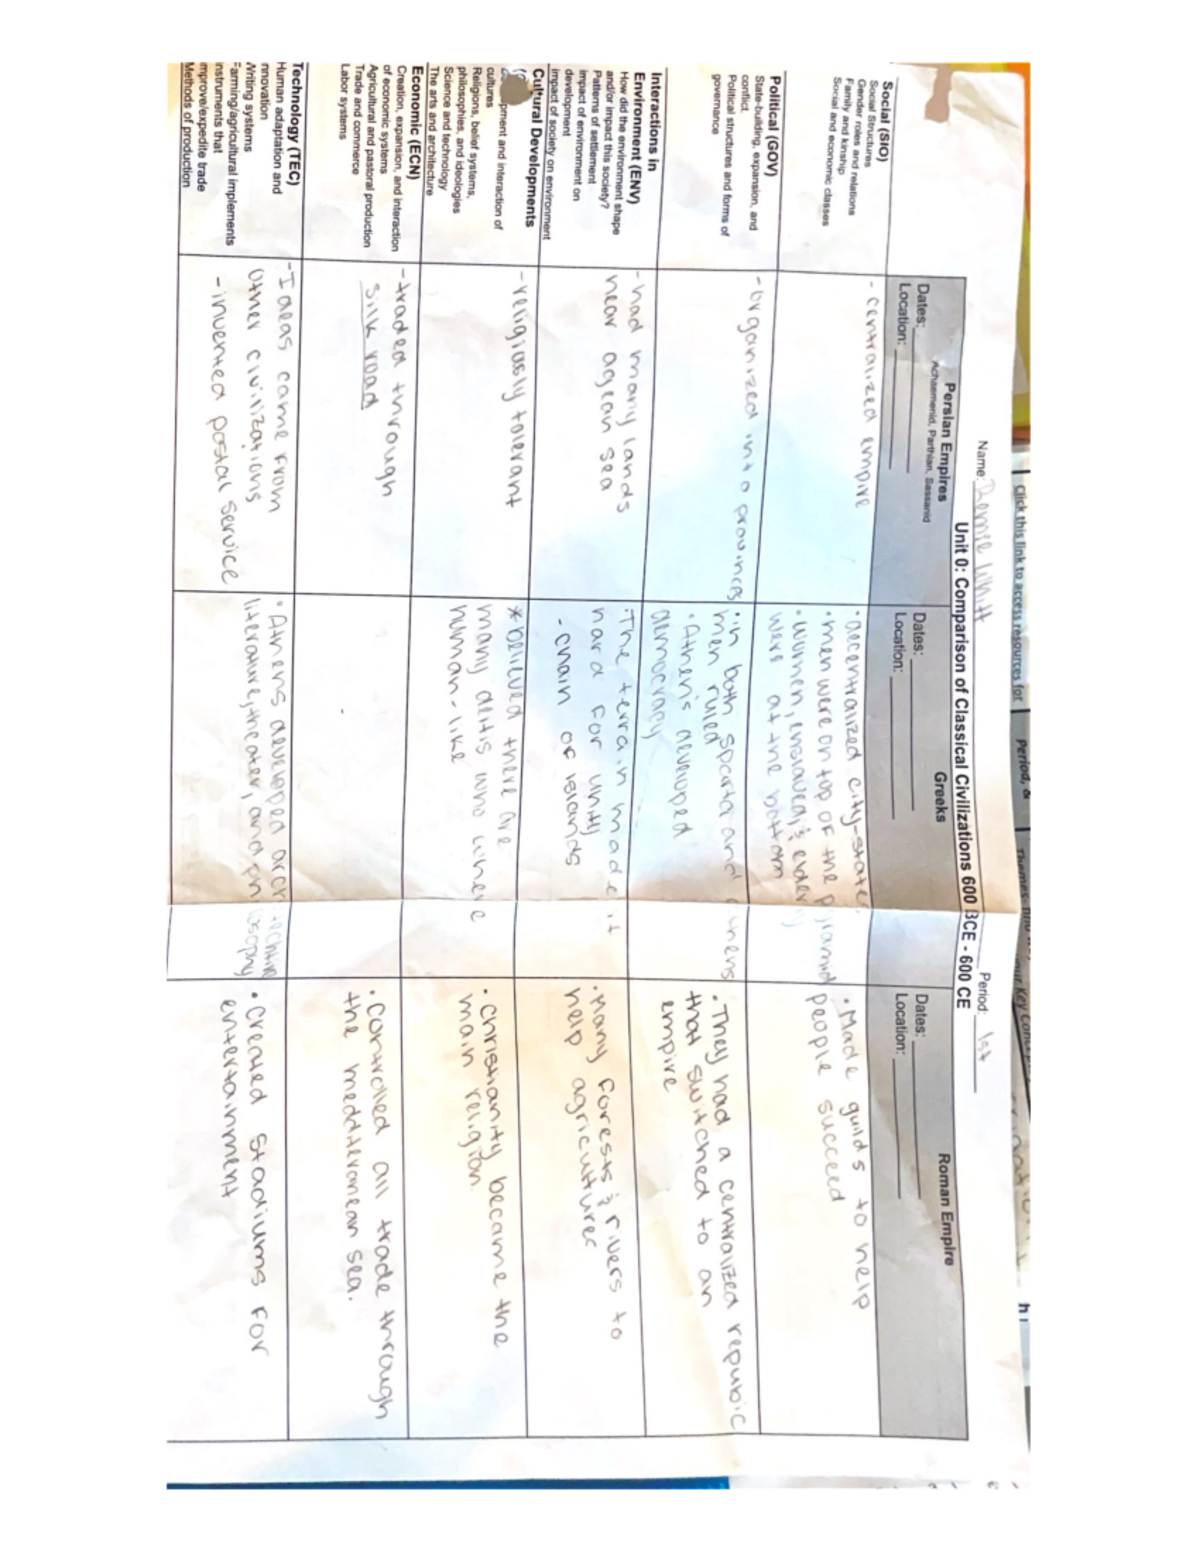 Click this link to access resources for
Period, &
Name: Remie Whitt
Period: 1st
Unit 0: Comparison of Classical Civilizations 600 BCE - 600 CE
Persian Empires
Achaemenid, Parthian, Sassanid
Dates:
Location:
Greeks
Dates:
Location:
Roman Empire
Dates:
Location:
Social (SIO)
Social Structures
Gender roles and relations
Family and kinship
Social and economic classes
- centralized empire
• decentralized city-states
• men were on top of the pyramid
• women, enslaved, & elderly
were at the bottom
• Made guilds to help
people succeed
Political (GOV)
State-building, expansion, and
conflict.
Political structures and forms of
governance
- organized into provinces
• in both sparta and Athens
men ruled
• Athen's developed
democracy
• They had a centralized repubic
that switched to an
empire
Interactions in
Environment (ENV)
How did the environment shape
and/or impact this society?
Patterns of settlement
impact of environment on
development
impact of society on environment
- had many lands
near agean sea
• The terrain made it
hard for unity
- chain of islands
• Many forests & rivers to
help agricultures
Cultural Developments
pment and interaction of
cultures
Religions, belief systems,
philosophies, and ideologies
Science and technology
The arts and architecture
- religiously tolerant
* believed there are
many deitis who where
human-like
• Christianity became the
main religion.
Economic (ECN)
Creation, expansion, and interaction
of economic systems
Agricultural and pastoral production
Trade and commerce
Labor systems
- traded through
silk road
• Controlled all trade through
the medditeranean sea.
Technology (TEC)
Human adaptation and
innovation
Writing systems
Farming/agricultural implements
instruments that
improve/expedite trade
Methods of production
- Ideas came from
other civilizations
- invented postal service
• Athens developed architechture
literature, theater, and philosophy
• created stadiums for
entertainment